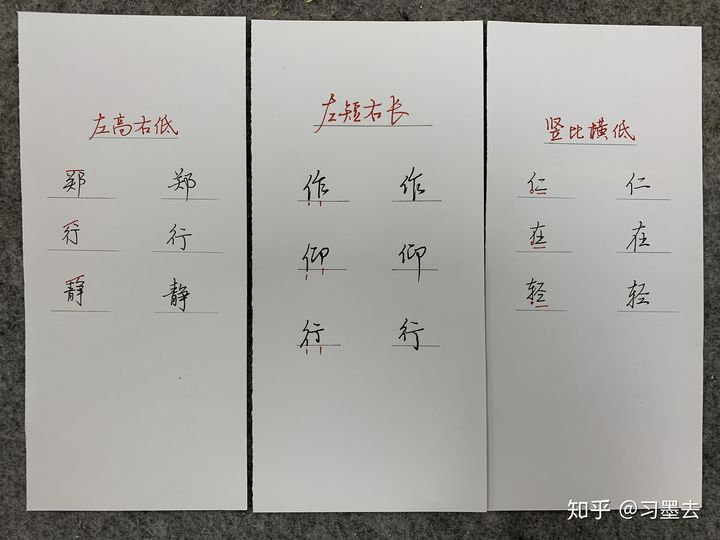 左高右低
郑 郑
行 行
静 静
左短右长
作 作
仰 仰
行 行
竖比横低
仁 仁
在 在
轻 轻
知乎 @习墨去